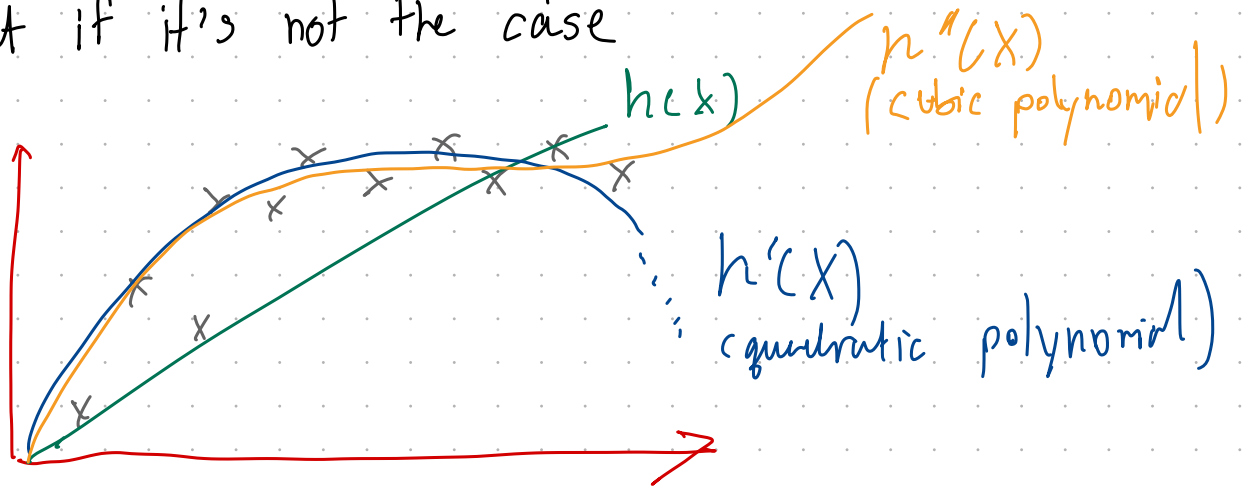 t if it's not the case
h(x)
h"(X)
(cubic polynomial)
h'(X)
(quadratic polynomial)